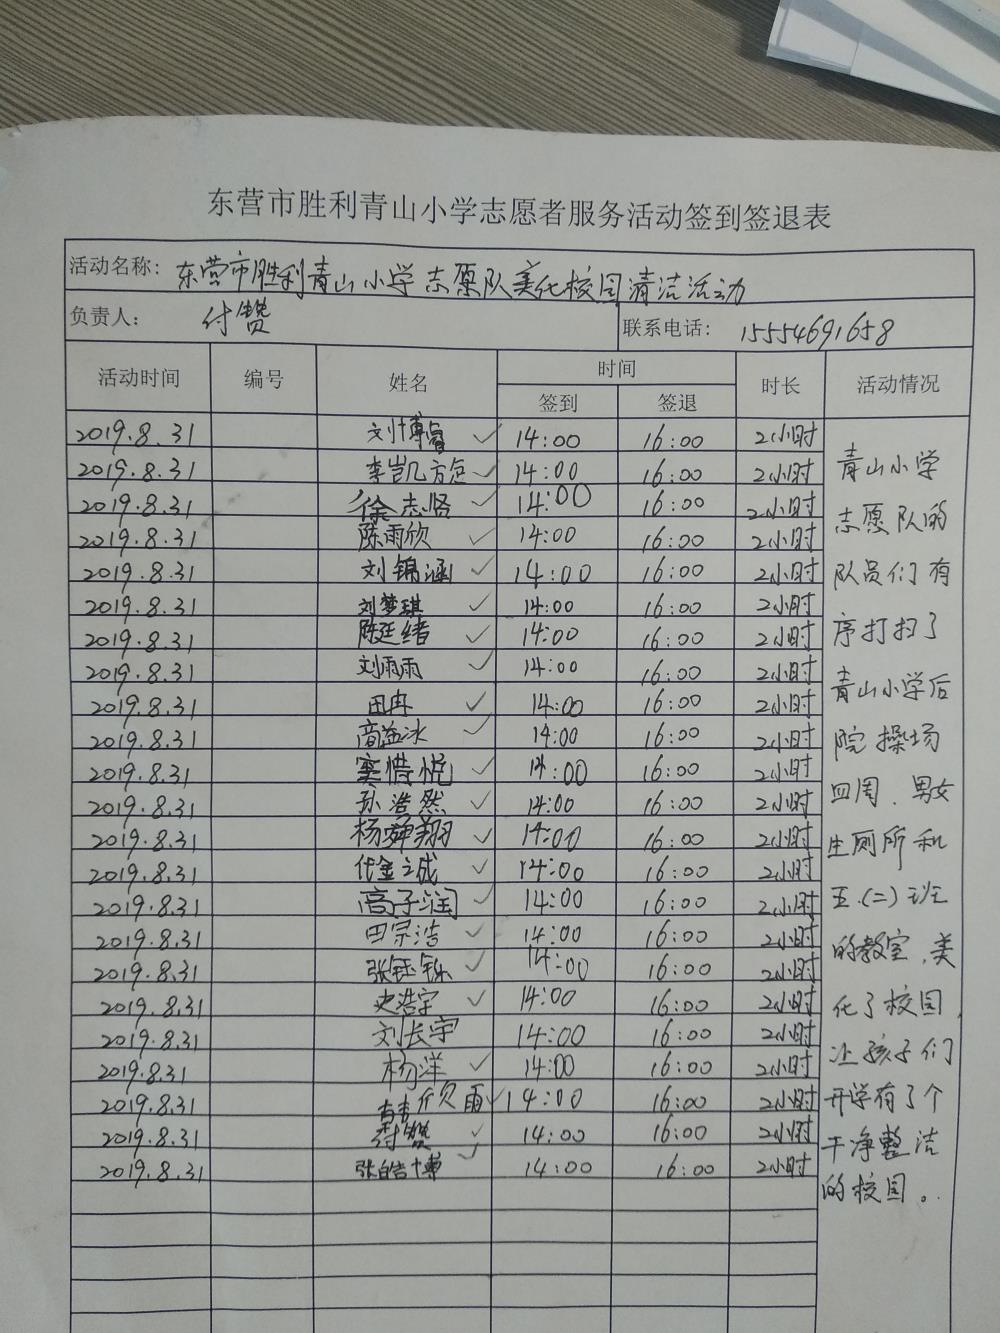 东营市胜利青山小学志愿者服务活动签到签退表
活动名称：东营市胜利青山小学志愿队美化校园清洁活动
负责人：付赞 联系电话：15554691658
活动时间 编号 姓名 时间 时长 活动情况
签到 签退
2019.8.31 刘博睿 ✓ 14:00 16:00 2小时
2019.8.31 李凯 ✓ 14:00 16:00 2小时
2019.8.31 徐志贤 ✓ 14:00 16:00 2小时
2019.8.31 陈雨欣 ✓ 14:00 16:00 2小时
2019.8.31 刘锦涵 ✓ 14:00 16:00 2小时
2019.8.31 刘梦琪 ✓ 14:00 16:00 2小时
2019.8.31 陈廷绪 ✓ 14:00 16:00 2小时
2019.8.31 刘雨雨 ✓ 14:00 16:00 2小时
2019.8.31 田冉 ✓ 14:00 16:00 2小时
2019.8.31 高溢冰 ✓ 14:00 16:00 2小时
2019.8.31 窦惜悦 ✓ 14:00 16:00 2小时
2019.8.31 孙浩然 ✓ 14:00 16:00 2小时
2019.8.31 杨舜翔 ✓ 14:00 16:00 2小时
2019.8.31 代金之成 ✓ 14:00 16:00 2小时
2019.8.31 高子润 ✓ 14:00 16:00 2小时
2019.8.31 田宗浩 ✓ 14:00 16:00 2小时
2019.8.31 张钰铄 ✓ 14:00 16:00 2小时
2019.8.31 史浩宇 ✓ 14:00 16:00 2小时
2019.8.31 刘长宇 14:00 16:00 2小时
2019.8.31 杨洋 ✓ 14:00 16:00 2小时
2019.8.31 雨 ✓ 14:00 16:00 2小时
2019.8.31 付赞 ✓ 14:00 16:00 2小时
2019.8.31 张皓博 ✓ 14:00 16:00 2小时
青山小学
志愿队的
队员们有
序打扫了
青山小学后
院操场
四周、男女
生厕所和
五.(二)班
的教室,美
化了校园,
让孩子们
开学有了个
干净整洁
的校园。